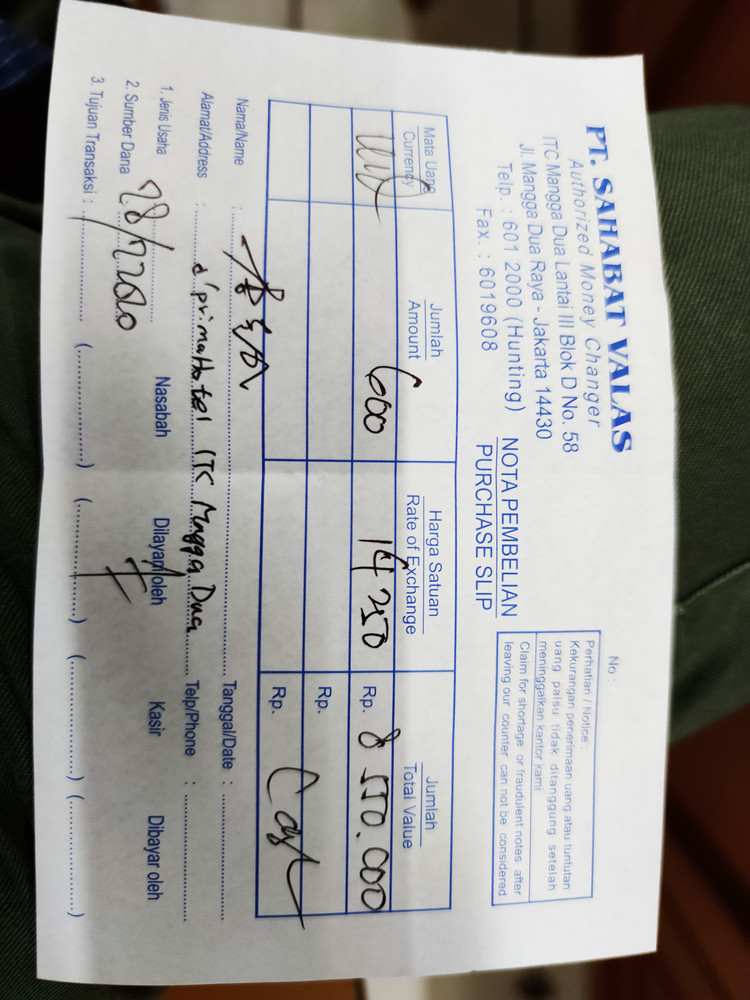 PT. SAHABAT VALAS
Authorized Money Changer
ITC Mangga Dua Lantai III Blok D No. 58
Jl. Mangga Dua Raya - Jakarta 14430
Telp. : 601 2000 (Hunting)
Fax. : 6019608
NOTA PEMBELIAN
PURCHASE SLIP
No :
Perhatian / Notice :
Kekurangan penerimaan uang atau tuntutan
uang palsu tidak ditanggung setelah
meninggalkan kantor kami
Claim for shortage or fraudulent notes after
leaving our counter can not be considered
Mata Uang Jumlah Harga Satuan Jumlah
Currency Amount Rate of Exchange Total Value
600 14 250 Rp. 8 550.000
Rp.
Rp. Cash
Nama/Name : Tanggal/Date :
Alamat/Address : d'primaHotel ITC Mangga Dua Telp/Phone :
1. Jenis Usaha Nasabah Dilayani oleh Kasir Dibayar oleh
2. Sumber Dana
3. Tujuan Transaksi : (....................) (....................) (....................) (....................)